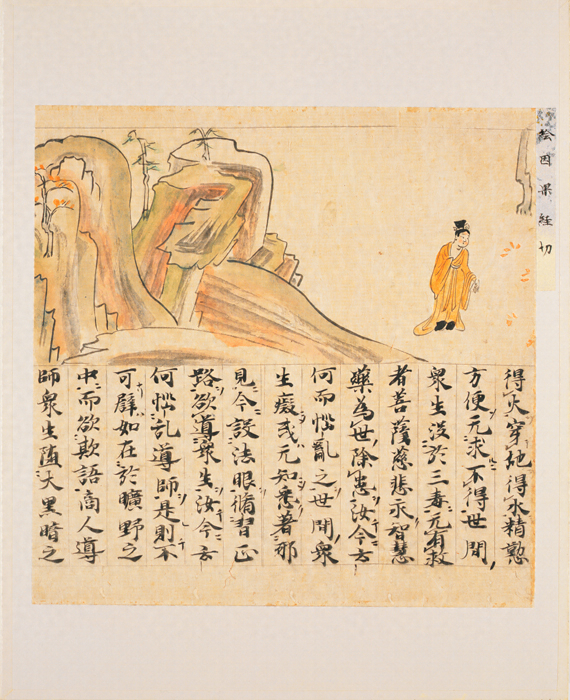 絵因果経切
得火穿地得水精懃
方便无求不得世間
衆生没於三毒无有救
者菩薩慈悲求智慧
藥為世除患汝今云
何而惱亂之世間衆
生癡惑无知悉著邪
見今設法眼脩習正
路欲導衆生汝今云
何惱乱導師是則不
可譬如在於曠野之
中而欲欺誑商人導
師衆生墮大黒暗之